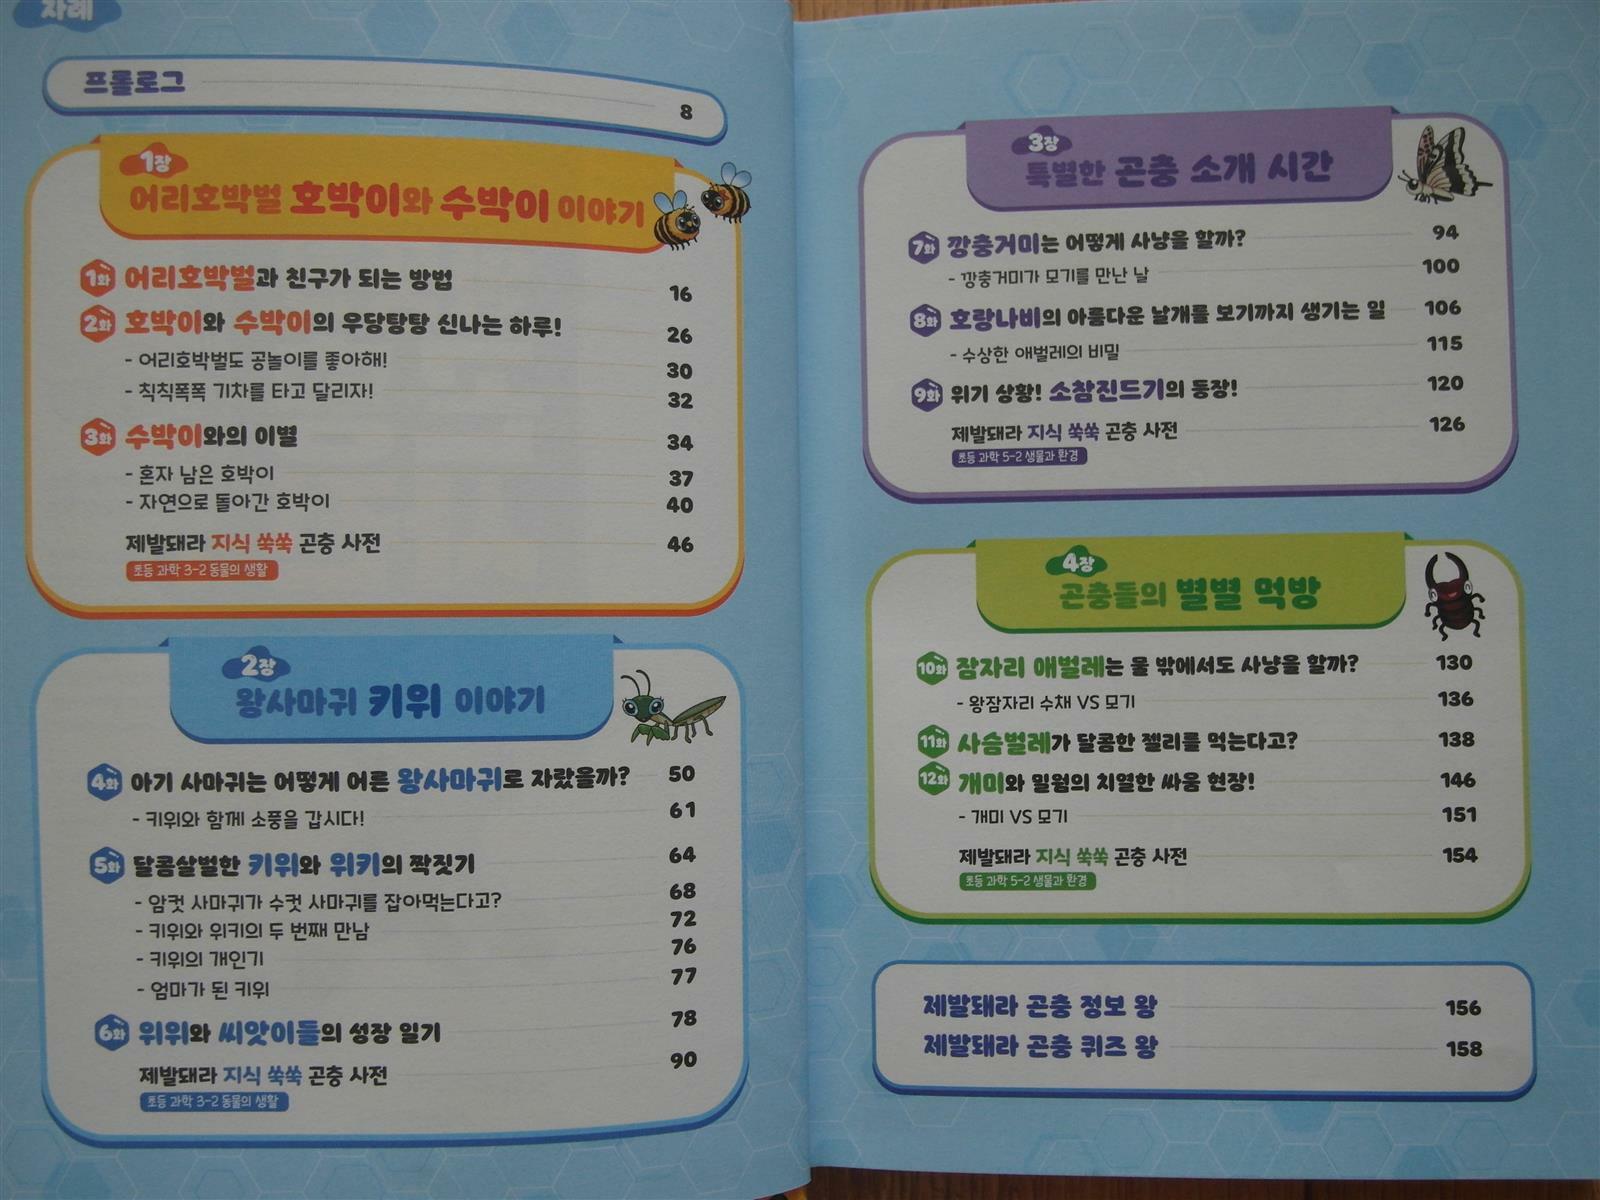 차례
프롤로그 8
1장
어리호박벌 호박이와 수박이 이야기
1화 어리호박벌과 친구가 되는 방법 16
2화 호박이와 수박이의 우당탕탕 신나는 하루! 26
- 어리호박벌도 공놀이를 좋아해! 30
- 칙칙폭폭 기차를 타고 달리자! 32
3화 수박이와의 이별 34
- 혼자 남은 호박이 37
- 자연으로 돌아간 호박이 40
제발돼라 지식 쑥쑥 곤충 사전 46
초등 과학 3-2 동물의 생활
2장
왕사마귀 키위 이야기
4화 아기 사마귀는 어떻게 어른 왕사마귀로 자랐을까? 50
- 키위와 함께 소풍을 갑시다! 61
5화 달콤살벌한 키위와 위키의 짝짓기 64
- 암컷 사마귀가 수컷 사마귀를 잡아먹는다고? 68
- 키위와 위키의 두 번째 만남 72
- 키위의 개인기 76
- 엄마가 된 키위 77
6화 위위와 씨앗이들의 성장 일기 78
제발돼라 지식 쑥쑥 곤충 사전 90
초등 과학 3-2 동물의 생활
3장
특별한 곤충 소개 시간
7화 깡충거미는 어떻게 사냥을 할까? 94
- 깡충거미가 모기를 만난 날 100
8화 호랑나비의 아름다운 날개를 보기까지 생기는 일 106
- 수상한 애벌레의 비밀 115
9화 위기 상황! 소참진드기의 등장! 120
제발돼라 지식 쑥쑥 곤충 사전 126
초등 과학 5-2 생물과 환경
4장
곤충들의 별별 먹방
10화 잠자리 애벌레는 물 밖에서도 사냥을 할까? 130
- 왕잠자리 수채 VS 모기 136
11화 사슴벌레가 달콤한 젤리를 먹는다고? 138
12화 개미와 밀웜의 치열한 싸움 현장! 146
- 개미 VS 모기 151
제발돼라 지식 쑥쑥 곤충 사전 154
초등 과학 5-2 생물과 환경
제발돼라 곤충 정보 왕 156
제발돼라 곤충 퀴즈 왕 158